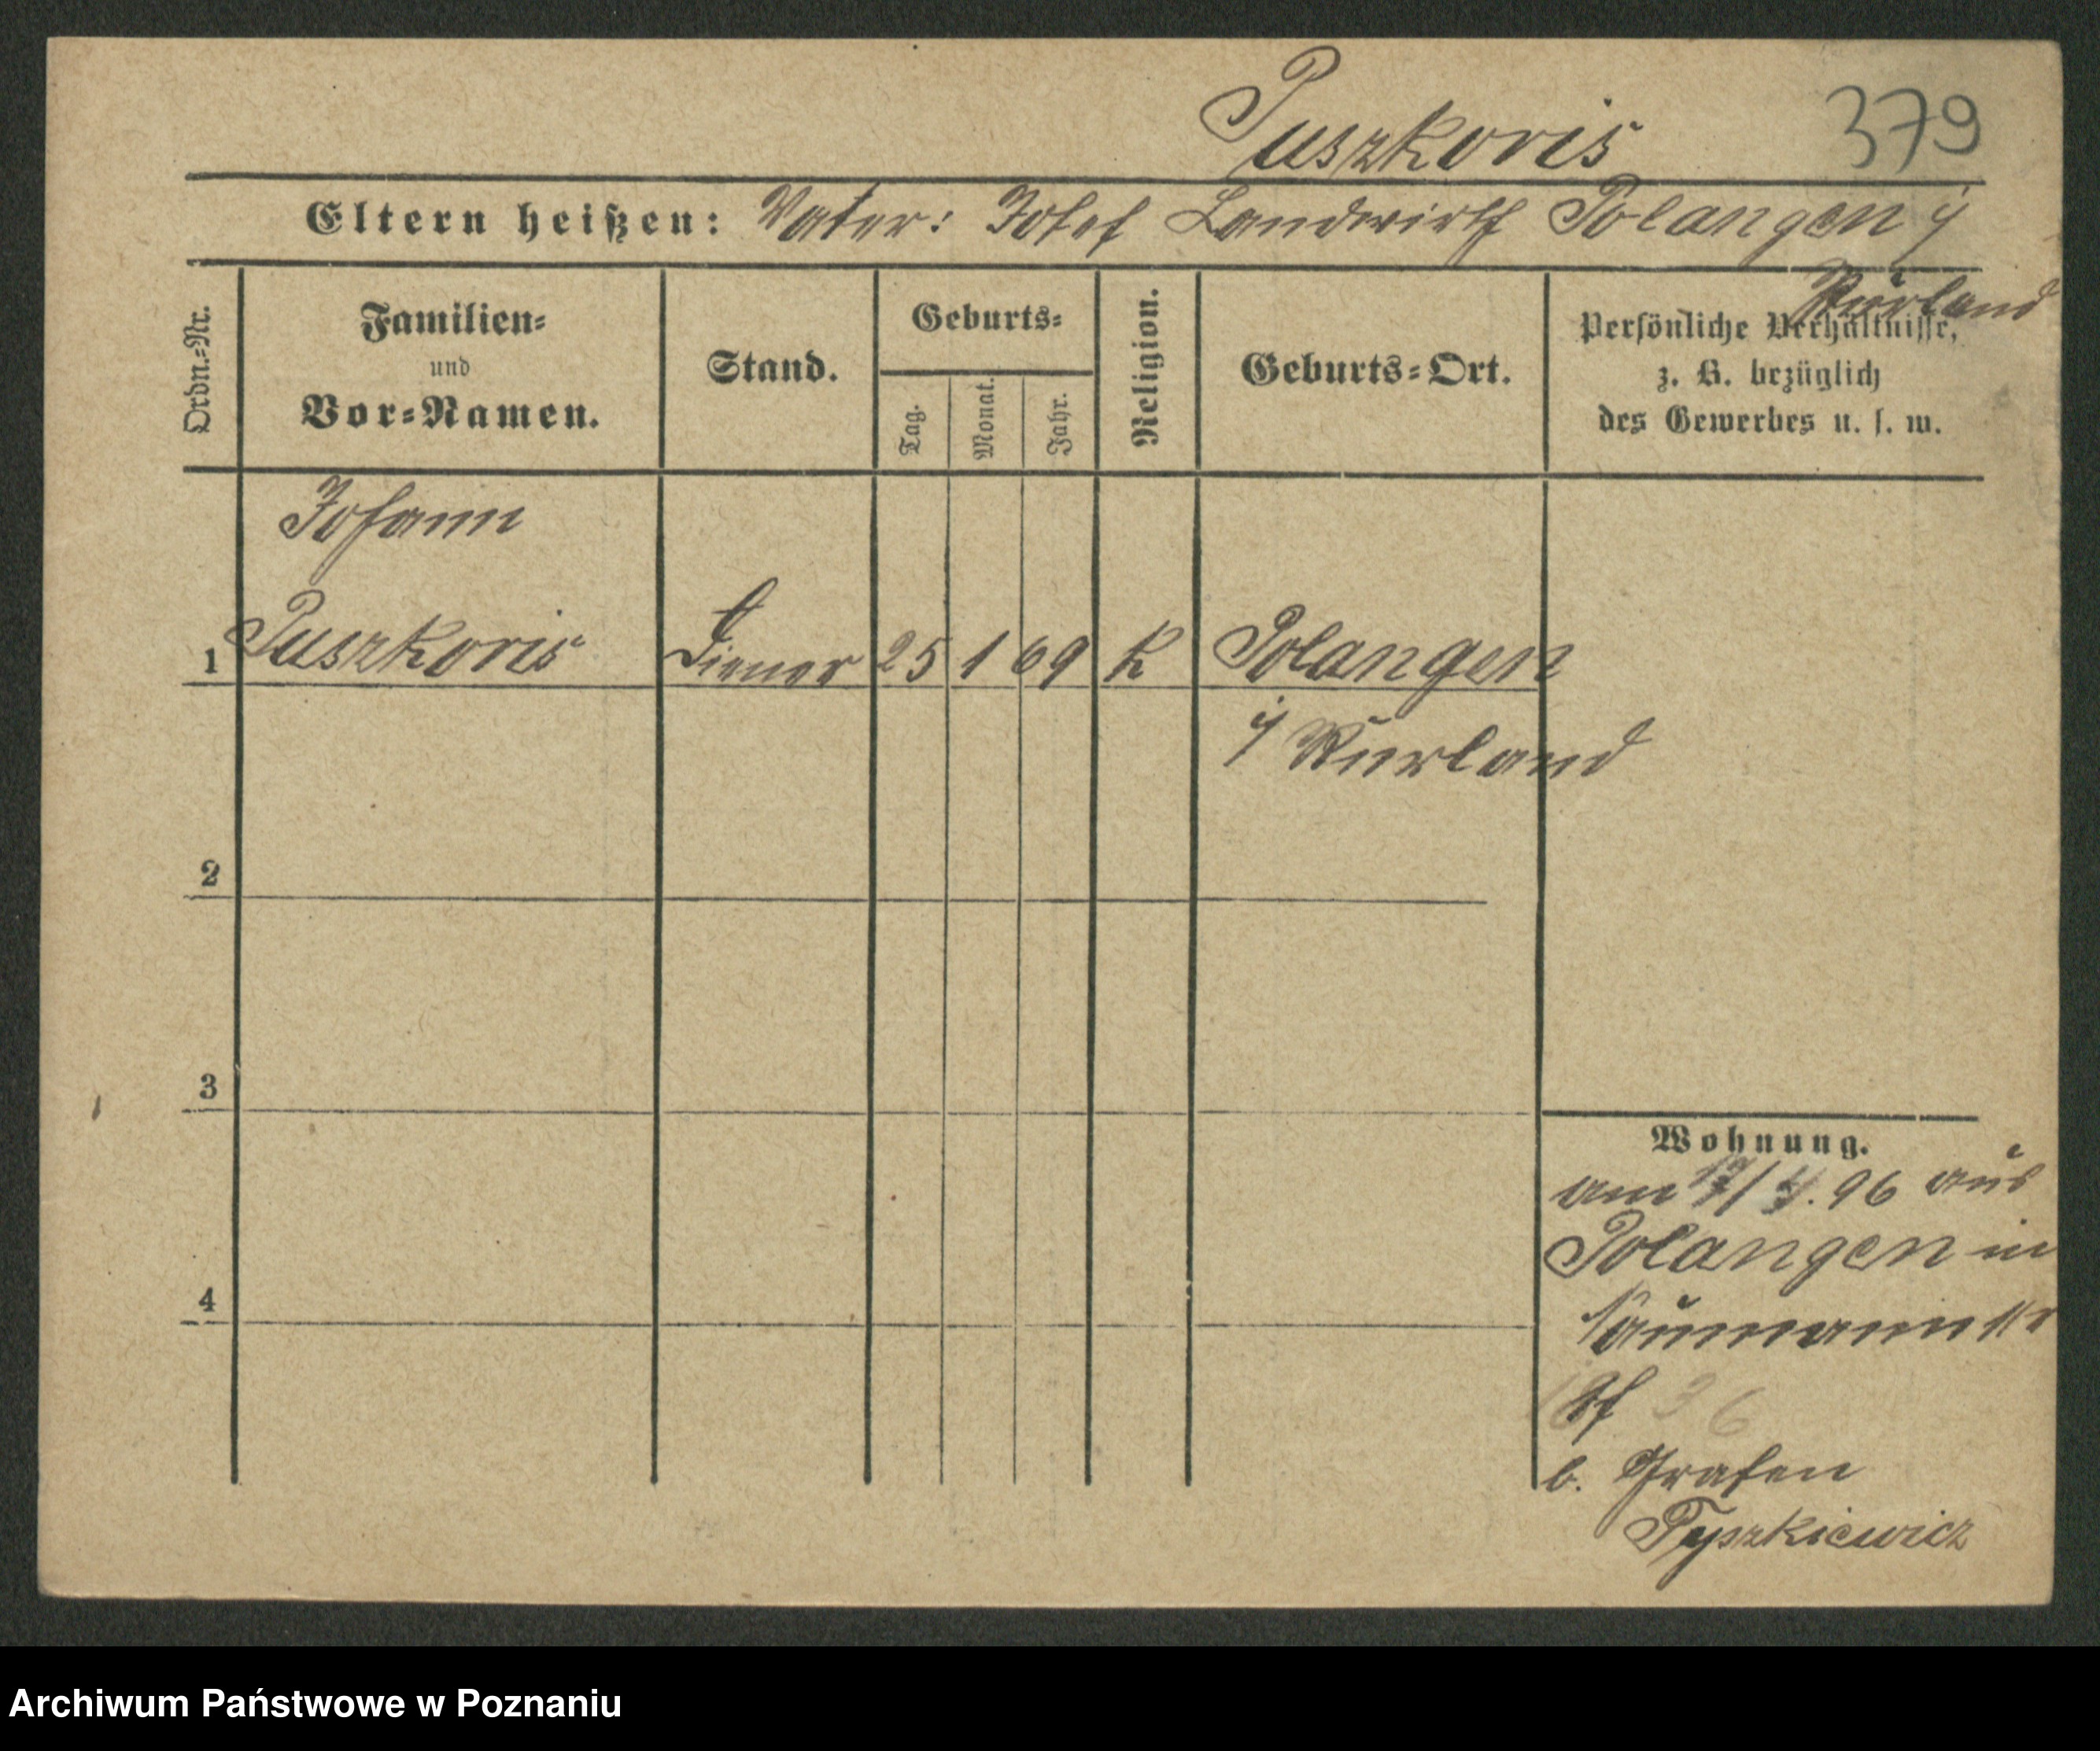 Puszkoris 379
Eltern heißen: Vater: Josef Landwirth Polangen i/
Kurland
Ordn.=Nr.
Familien=
und
Vor=Namen.
Stand.
Geburts=
Tag.
Monat.
Jahr.
Religion.
Geburts=Ort.
Persönliche Verhältnisse,
z. B. bezüglich
des Gewerbes u. s. w.
Johann
1 Puszkoris Diener 25 1 69 K Polangen
i/ Kurland
2
3
4
Wohnung.
am 17/4. 96 aus
Polangen in
Naumannstr
b. Grafen
Tyszkiewicz
Archiwum Państwowe w Poznaniu